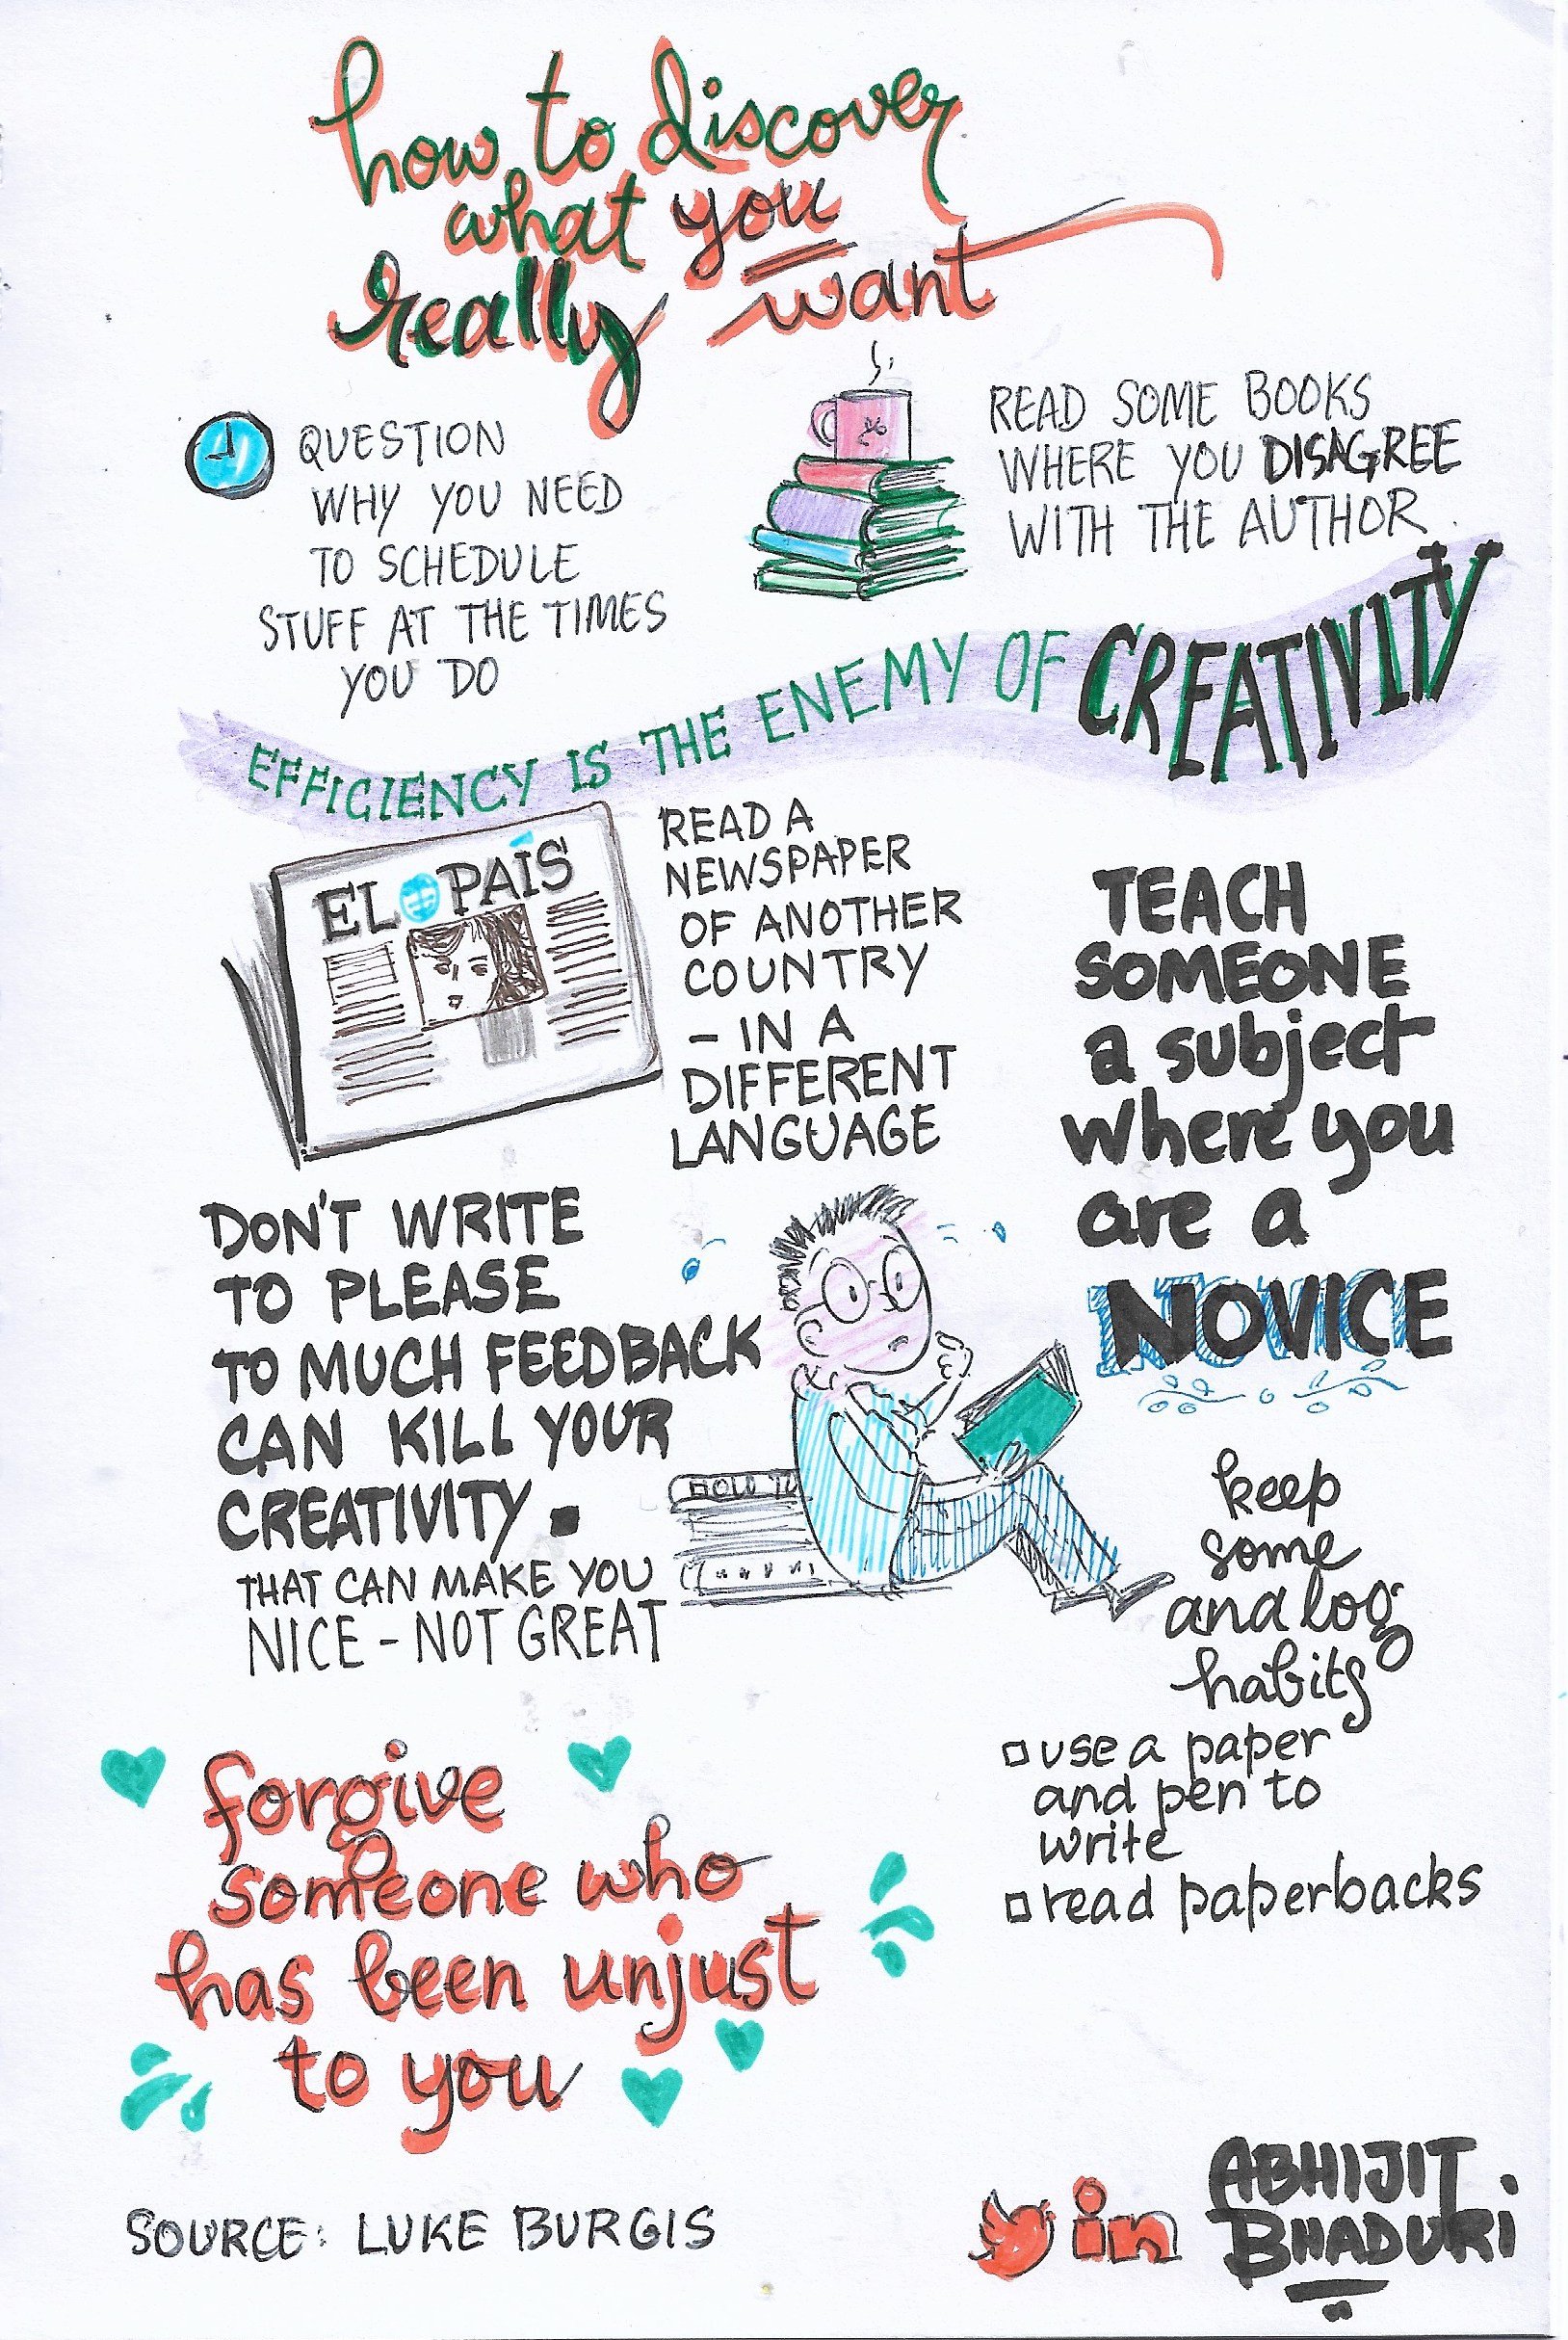 how to discover
what you
really want
QUESTION
WHY YOU NEED
TO SCHEDULE
STUFF AT THE TIMES
YOU DO
READ SOME BOOKS
WHERE YOU DISAGREE
WITH THE AUTHOR.
EFFICIENCY IS THE ENEMY OF CREATIVITY
EL PAÍS
READ A
NEWSPAPER
OF ANOTHER
COUNTRY
- IN A
DIFFERENT
LANGUAGE
TEACH
SOMEONE
a subject
where you
are a
NOVICE
DON'T WRITE
TO PLEASE
TO MUCH FEEDBACK
CAN KILL YOUR
CREATIVITY.
THAT CAN MAKE YOU
NICE - NOT GREAT
HOW TO
keep
some
analog
habits
use a paper
and pen to
write
read paperbacks
forgive
someone who
has been unjust
to you
SOURCE: LUKE BURGIS
in
ABHIJIT
BHADURI